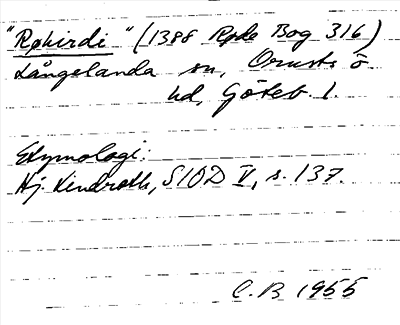 "Røkirdi" (1388 Røde Bog 316)
Långelanda sn, Orusts ö
hd, Göteb. l.
Etymologi:
Hj. Lindroth, SIOD V, s. 137.
C. B 1955